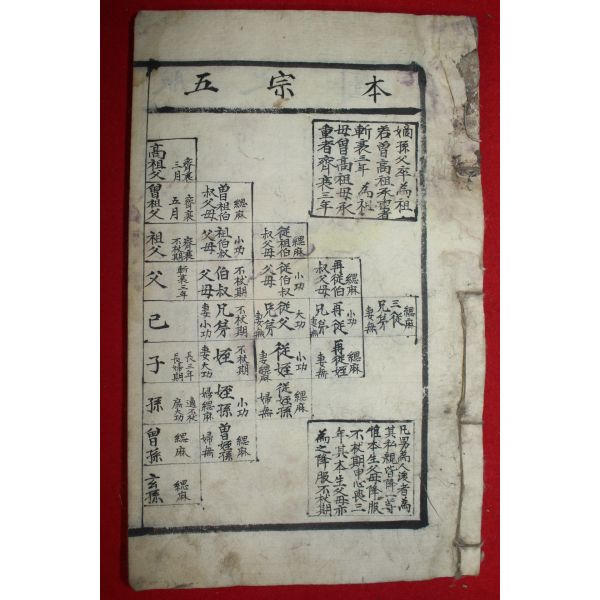 本宗五
嫡孫父卒為祖
若曾高祖承重者
斬衰三年 為祖
母曾高祖母承
重者齊衰三年
緦麻
三從
兄弟
妻無
緦麻
再從伯
叔父母
小功
再從
兄弟
妻無
緦麻
再從姪
妻無
緦麻
從祖伯
叔父母
小功
從伯叔
父母
大功
從父
兄弟
妻無
小功
從姪
妻緦麻
緦麻
從姪孫
婦無
緦麻
曾祖伯
叔父母
小功
祖伯叔
父母
不杖期
伯叔
父母
不杖期
兄弟
妻小功
不杖期
姪
妻大功
小功
姪孫
婦緦麻
緦麻
曾姪孫
婦無
齊衰
三月
高祖父
齊衰
五月
曾祖父
齊衰
不杖期
祖父
斬衰三年
父
己
長三年
長婦期
子
適不杖
庶大功
孫
緦麻
曾孫
緦麻
玄孫
凡男為人後者為
其私親皆降一等
惟本生父母降服
不杖期申心喪三
年其本生父母亦
為之降服不杖期